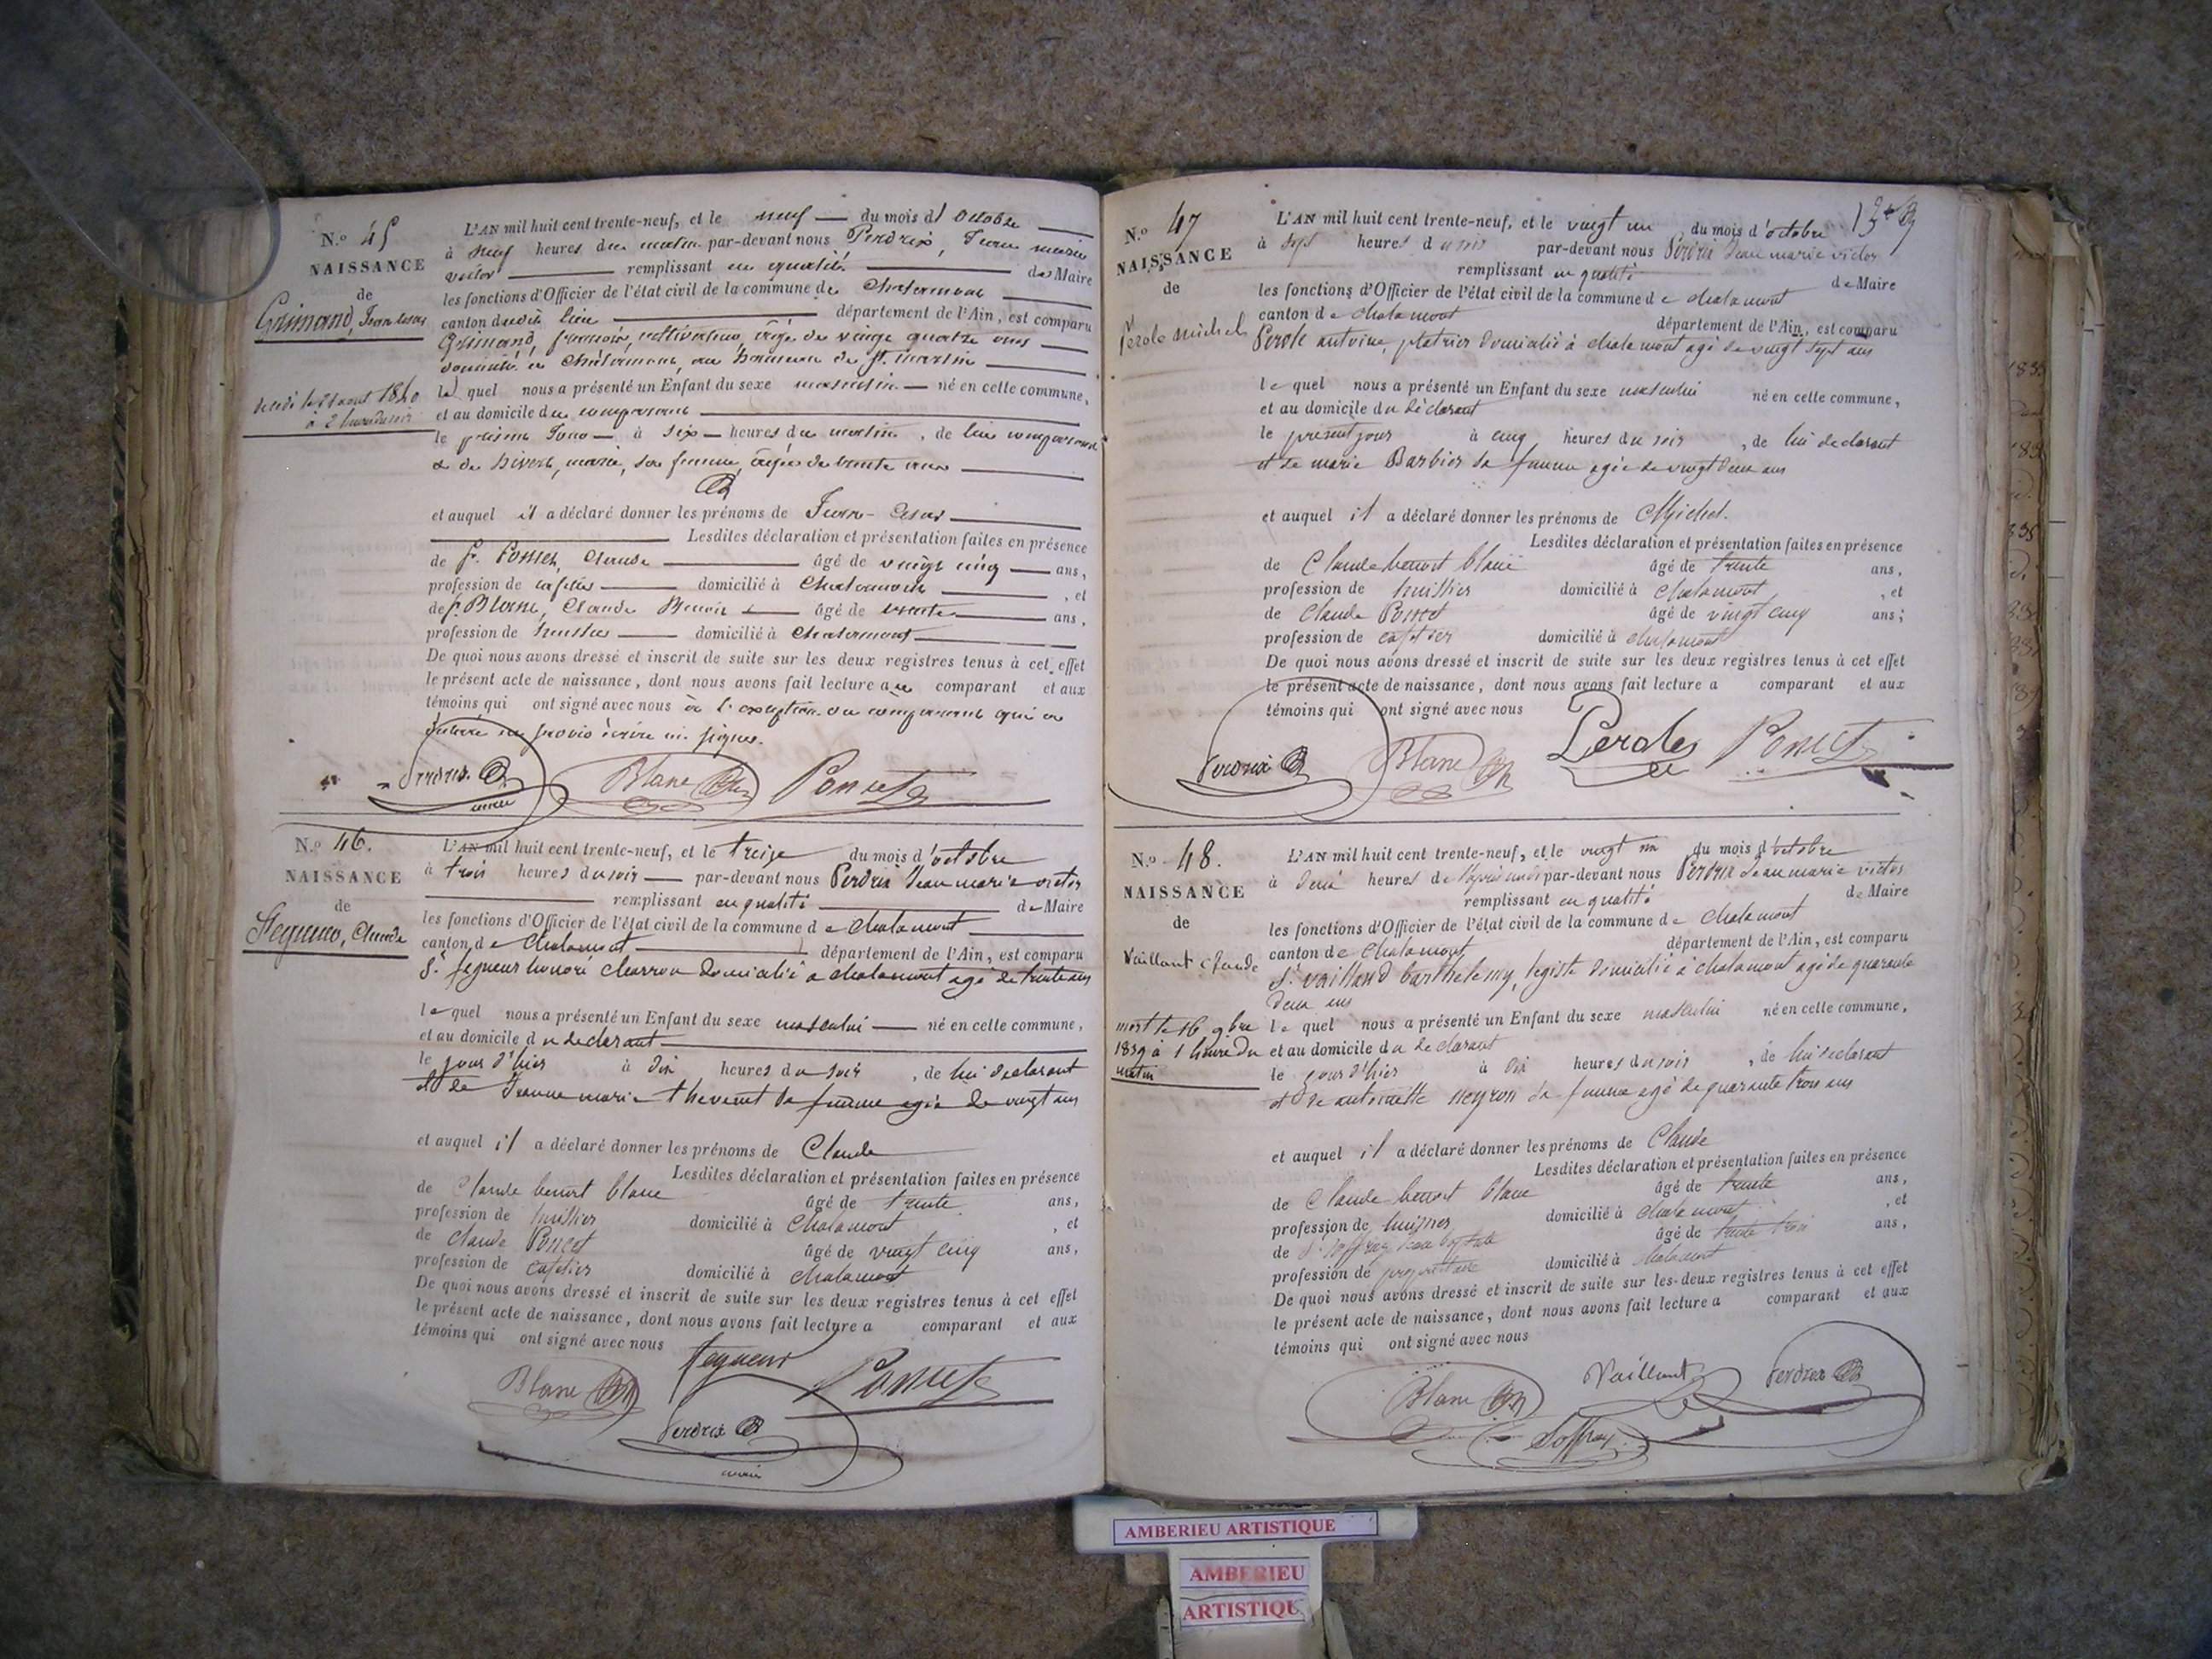 N.o 45
NAISSANCE
de
Grimand, Jean Cesar
décédé le 21 aout 1840
à 2 heures du soir
L'AN mil huit cent trente-neuf, et le neuf du mois d'Octobre
à neuf heures du matin par-devant nous Perdrix, Jean marie
victor remplissant en qualité de Maire
les fonctions d'Officier de l'état civil de la commune de Chatamont
canton dudit lieu département de l'Ain, est comparu
Grimand, françois, cultivateur, âgé de vingt quatre ans
domicilié à Chalamont, au hameau de St. martin
lequel nous a présenté un Enfant du sexe masculin né en cette commune,
et au domicile du comparant
le présent Jour à six heures du matin, de lui comparant
& de marie, sa femme, âgée de trente ans
et auquel il a déclaré donner les prénoms de Jean-Cesar
Lesdites déclaration et présentation faites en présence
de Sr. Poncet, Claude âgé de vingt cinq ans,
profession de cafetier domicilié à Chalamont, et
de Sr. Blanc, Claude Benoit âgé de trente ans,
profession de huissier domicilié à Chalamont
De quoi nous avons dressé et inscrit de suite sur les deux registres tenus à cet effet
le présent acte de naissance, dont nous avons fait lecture au comparant et aux
témoins qui ont signé avec nous à l'exception du comparant qui a
déclaré ne savoir écrire ni signer.
Perdrix Blanc Poncet
maire
N.o 46.
NAISSANCE
de
Seigneur, Claude
L'AN mil huit cent trente-neuf, et le treize du mois d'octobre
à trois heures du soir par-devant nous Perdrix Jean marie victor
remplissant en qualité de Maire
les fonctions d'Officier de l'état civil de la commune de chalamont
canton de Chalamont département de l'Ain, est comparu
Sr. Segneur honoré charron domicilié a chalamont agé de trente ans
lequel nous a présenté un Enfant du sexe masculin né en cette commune,
et au domicile du declarant
le jour d'hier à dix heures du soir, de lui declarant
et de Jeanne marie thevenet sa femme agée de vingt ans
et auquel il a déclaré donner les prénoms de Claude
Lesdites déclaration et présentation faites en présence
de Claude benoit blanc âgé de trente ans,
profession de huissier domicilié à Chalamont, et
de claude Poncet âgé de vingt cinq ans,
profession de cafetier domicilié à chalamont
De quoi nous avons dressé et inscrit de suite sur les deux registres tenus à cet effet
le présent acte de naissance, dont nous avons fait lecture a comparant et aux
témoins qui ont signé avec nous
Segneur
Blanc Poncet
Perdrix
maire
N.o 47
NAISSANCE
de
Perole Michel
L'AN mil huit cent trente-neuf, et le vingt un du mois d'octobre
à sept heures du soir par-devant nous Perdrix Jean marie victor
remplissant en qualité de Maire
les fonctions d'Officier de l'état civil de la commune de chalamont
canton de chalamont département de l'Ain, est comparu
Perole antoine, platrier domicilié à chalamont agé de vingt sept ans
lequel nous a présenté un Enfant du sexe masculin né en cette commune,
et au domicile du déclarant
le present jour à cinq heures du soir, de lui declarant
et de marie Barbier sa femme agée de vingt deux ans
et auquel il a déclaré donner les prénoms de Michel.
Lesdites déclaration et présentation faites en présence
de Claude benoit blanc âgé de trente ans,
profession de huissier domicilié à chalamont, et
de Claude Poncet âgé de vingt cinq ans;
profession de cafetier domicilié à chalamont
De quoi nous avons dressé et inscrit de suite sur les deux registres tenus à cet effet
le présent acte de naissance, dont nous avons fait lecture a comparant et aux
témoins qui ont signé avec nous
Perdrix Blanc Perole Poncet
N.o 48.
NAISSANCE
de
Vaillant Claude
mort le 16 9bre
1839 à 1 heure du
matin
L'AN mil huit cent trente-neuf, et le vingt un du mois d'octobre
à deux heures de l'après midi par-devant nous Perdrix Jean marie victor
remplissant en qualité de Maire
les fonctions d'Officier de l'état civil de la commune de Chalamont
canton de Chalamont département de l'Ain, est comparu
Sr. vailland barthelemy, legiste domicilié à chalamont agé de quarante
deux ans
lequel nous a présenté un Enfant du sexe masculin né en cette commune,
et au domicile du declarant
le jour d'hier à dix heures du soir, de lui declarant
et de antoinette neyron sa femme agé de quarante trois ans
et auquel il a déclaré donner les prénoms de Claude
Lesdites déclaration et présentation faites en présence
de Claude benoit blanc âgé de trente ans,
profession de huissier domicilié à chalamont, et
de Sr Joffray Jean baptiste âgé de trente trois ans,
profession de propriétaire domicilié à chalamont
De quoi nous avons dressé et inscrit de suite sur les deux registres tenus à cet effet
le présent acte de naissance, dont nous avons fait lecture a comparant et aux
témoins qui ont signé avec nous
Blanc Vaillant Perdrix
Joffray
AMBERIEU ARTISTIQUE
AMBERIEU
ARTISTIQUE